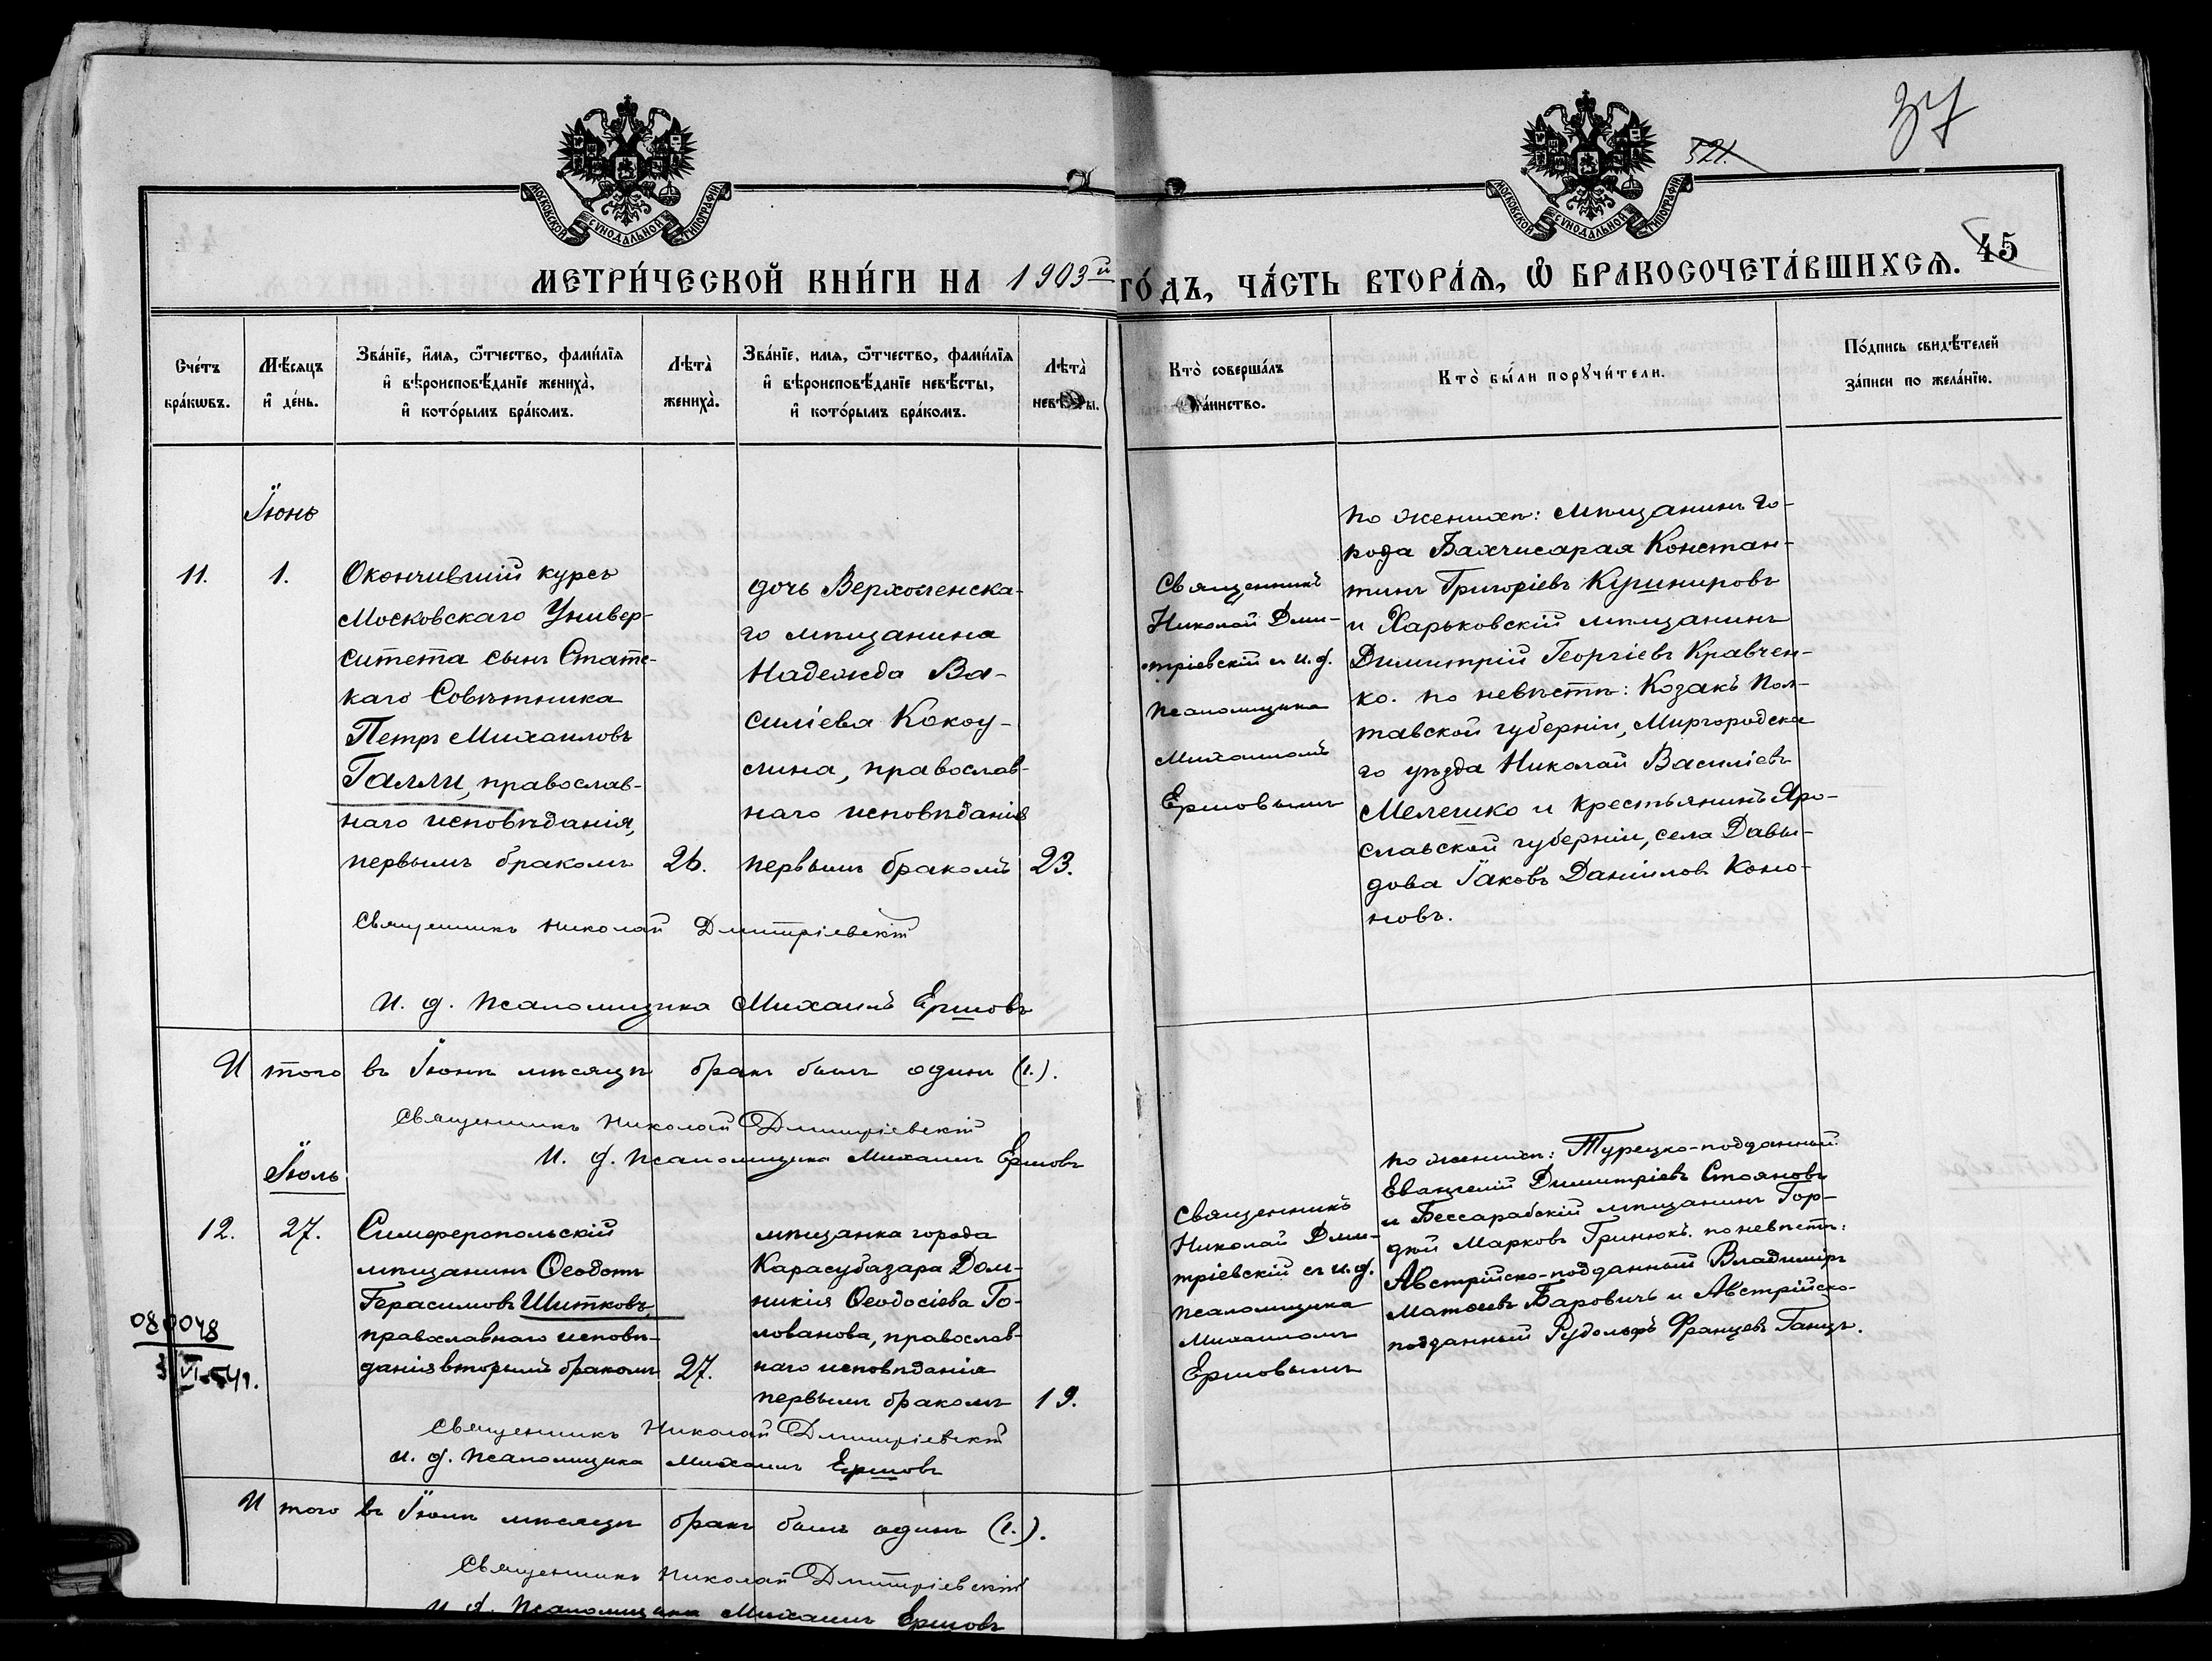 37
521.
МОСКОВСКОЙ СѴНОДАЛЬНОЙ ТИПОГРАФІИ
МОСКОВСКОЙ СѴНОДАЛЬНОЙ ТИПОГРАФІИ
45
МЕТРИ́ЧЕСКОЙ КНИ́ГИ НА 1903й ГО́ДЪ, ЧА́СТЬ ВТОРА́Я, Ѽ БРАКОСОЧЕТА́ВШИХСЯ.
Сче́тъ
бра́кѡвъ.
Мѣ́сяцъ
и҆ де́нь.
Зва́нїе, и҆́мя, ѻ҆́тчество, фами́лїя
и҆ вѣроисповѣ́данїе жениха̀,
и҆ кото́рымъ бра́комъ.
Лѣта̀
жениха̀.
Зва́нїе, имя, ѻ҆́тчество, фами́лїя
и҆ вѣроисповѣ́данїе невѣ́сты,
и҆ кото́рымъ бра́комъ.
Лѣта̀
невѣ́сты.
Кто̀ соверша́лъ
та́инство.
Кто̀ бы́ли порꙋчи́тели.
По́дпись свидѣ́телей
за́писи по жела́нїю.
Іюнь
11.
1.
Окончившій курсъ
Московскаго Универ-
ситета сынъ Статс-
каго Совѣтника
Петръ Михаиловъ
Галли, православ-
наго исповѣданія,
первымъ бракомъ
26.
дочь Верхоленска-
го мѣщанина
Надежда Ва-
силіева Кокоу-
лина, православ-
наго исповѣданія
первымъ бракомъ
23.
Священникъ
Николай Дми-
тріевскій с и. д.
псаломщика
Михаиломъ
Ершовымъ
по женихѣ: мѣщанинъ го-
рода Бахчисарая Констан-
тинъ Григоріевъ Кушнировъ
и Харьковскій мѣщанинъ
Димитрій Георгіевъ Кравчен-
ко. по невѣстѣ: Козакъ Пол-
тавской губерніи, Миргородска
го уѣзда Николай Василіевъ
Мелешко и крестьянинъ Яро-
славской губерніи, села Давы-
дова Іаковъ Даніиловъ Коно-
новъ.
Священникъ Николай Дмитріевскій
И. д. псаломщика Михаилъ Ершовъ
Итого въ Іюнѣ мѣсяцѣ бракъ былъ одинъ (1.).
Священникъ Николай Дмитріевскій
И. д. псаломщика Михаилъ Ершовъ
Іюль
12.
27.
Симферопольскій
мѣщанинъ Ѳеодотъ
Герасимовъ Шитковъ,
православнаго исповѣ-
данія вторымъ бракомъ
27.
мѣщанка города
Карасубазара Дом-
никія Ѳеодосіева Го-
лованова, православ-
наго исповѣданія
первымъ бракомъ
19.
Священникъ
Николай Дми-
тріевскій съ и. д.
псаломщика
Михаиломъ
Ершовымъ
по женихѣ: Турецко-подданный
Евангелій Димитріевъ Стояновъ
и Бессарабскій мѣщанинъ Гор-
дѣй Марковъ Гринюкъ. по невѣстѣ:
Австрійско-подданный Владиміръ
Матѳеевъ Баровичъ и Австрійско-
подданный Рудольфъ Францевъ Ганцъ.
080048
3 VI-54г.
Священникъ Николай Дмитріевскій
и. д. псаломщика Михаилъ Ершовъ
Итого въ Іюлѣ мѣсяцѣ бракъ былъ одинъ (1.).
Священникъ Николай Дмитріевскій
И. д. псаломщика Михаилъ Ершовъ